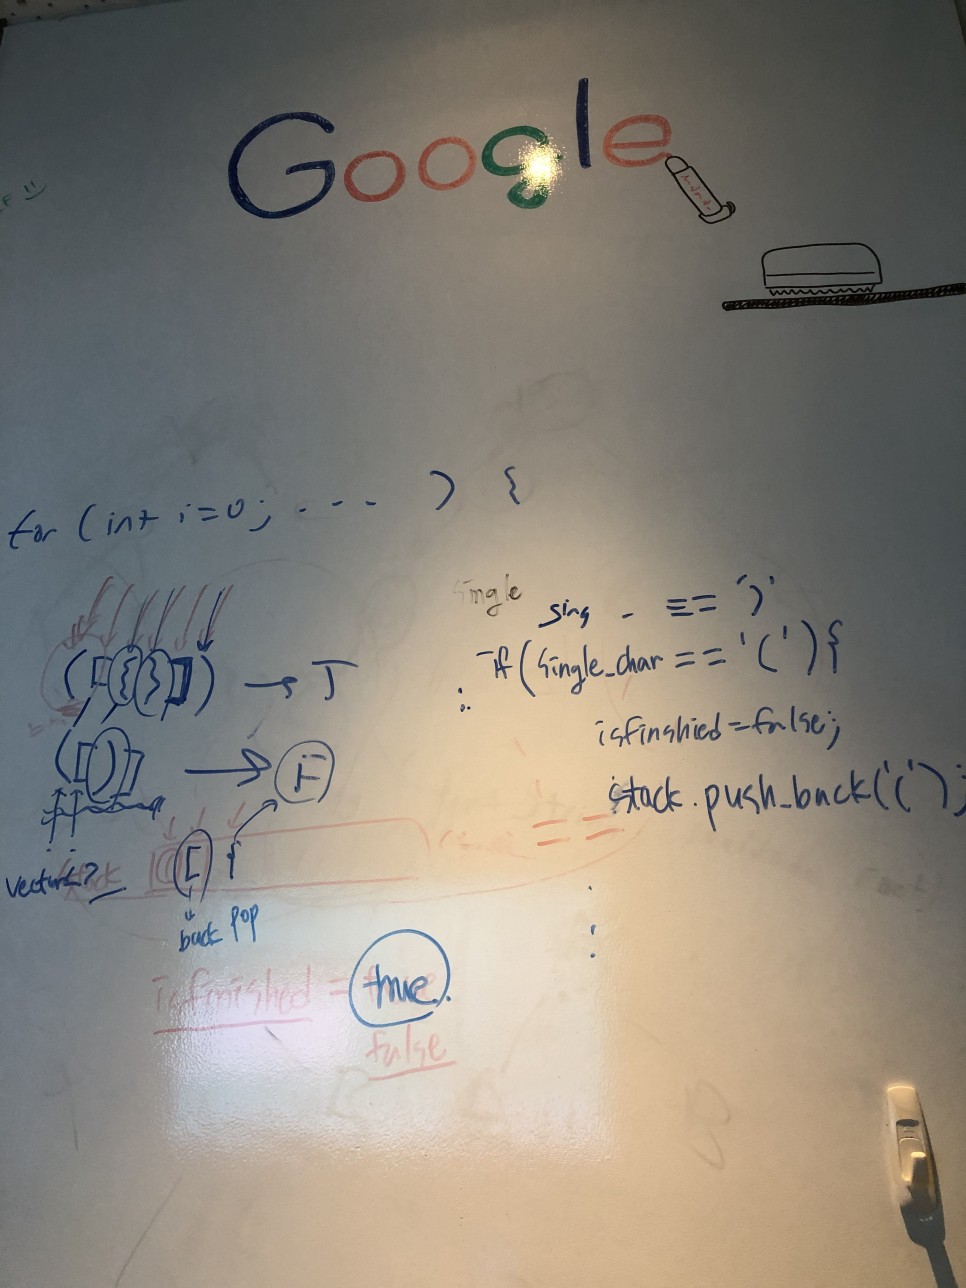 Google
for (int i=0; - - - ) {
single
sing - == ')'
if(single_char == '('){
([{}]) → T
isfinshied=false;
([)] → F
stack.push_back('(');
==
stack
[ {
back pop
isfinished = true.
false